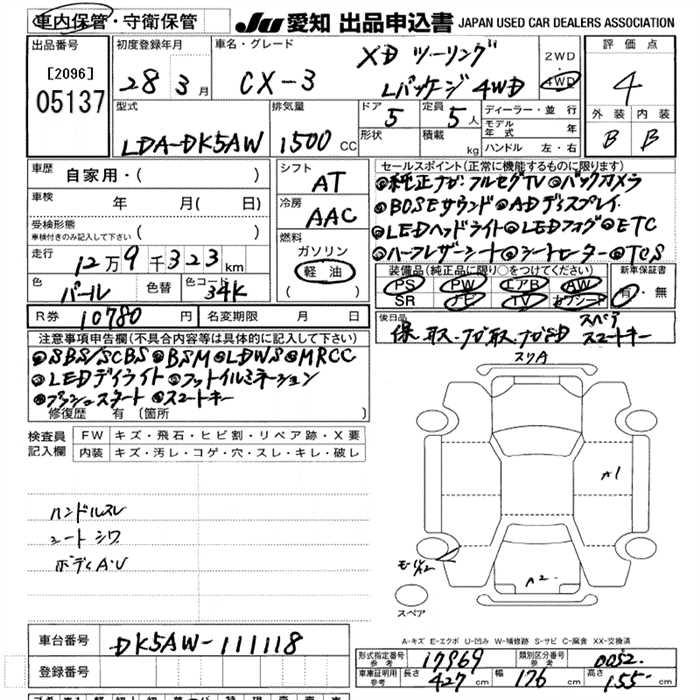 車内保管・守衛保管
JU 愛知 出品申込書 JAPAN USED CAR DEALERS ASSOCIATION
出品番号
[2096]
05137
初度登録年月
28 3月
車名・グレード
CX-3
XD ツーリング
Lパッケージ 4WD
2WD
・
4WD
評価点
4
外装 内装
B B
型式
LDA-DK5AW
排気量
1500 CC
ドア
5
定員
5人
形状
積載
kg
ディーラー・並行
モデル
年式
ハンドル 左・右
車歴 自家用・( )
車検 年 月( 日)
受検形態
車検付きのみ記入して下さい ( )
走行 12万9千323km
色 パール 色替 色コード 34K
シフト
AT
冷房
AAC
燃料
ガソリン
軽油
( )
セールスポイント(正常に機能するものに限ります)
◎純正ナビ フルセグTV ◎バックカメラ
◎BOSEサウンド ◎ADディスプレイ
◎LEDヘッドライト ◎LEDフォグ ◎ETC
◎ハーフレザーシート ◎シートヒーター ◎TCS
装備品(純正品に限り○をつけてください)
PS PW エアB AW
SR ナビ TV カワシート
新車保証書
有・無
R券 10780円 名変期限 月 日
後日品
保、取、ナビ取、ナビSD スペア
スマートキー
注意事項申告欄(不具合内容等は具体的に記入して下さい)
◎SBS/SCBS ◎BSM ◎LDWS ◎MRCC
◎LEDデイライト ◎フットイルミネーション
◎プッシュスタート ◎スマートキー
修復歴 有 (箇所 )
検査員
記入欄
FW キズ・飛石・ヒビ割・リペア跡・X要
内装 キズ・汚レ・コゲ・穴・スレ・キレ・破レ
ハンドルスレ
シート シワ
ボディA・U
スリA
A1
A2
スペア
A-キズ E-エクボ U-凹み W-補修跡 S-サビ C-腐食 XX-交換済
車台番号 DK5AW-111118
登録番号
形式指定番号
参考
17969
類別区分番号
参考
0052
車庫証明用
参考
長さ 427cm 幅 176cm 高さ 155cm